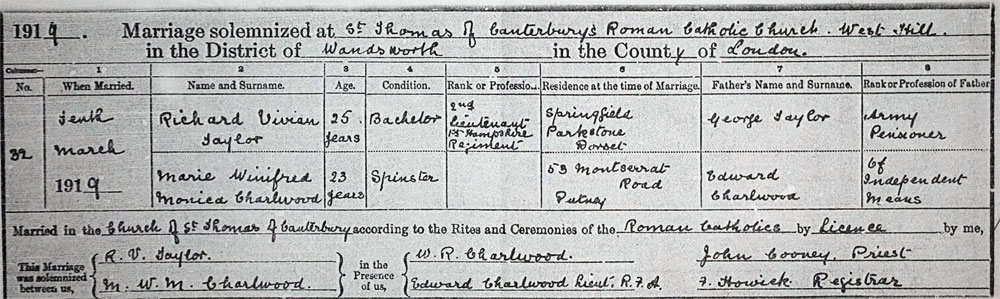 1919. Marriage solemnized at St Thomas of Canterbury's Roman Catholic Church. West Hill.
in the District of Wandsworth in the County of London.
Columns:— 1 2 3 4 5 6 7 8
No. When Married. Name and Surname. Age. Condition. Rank or Profession. Residence at the time of Marriage. Father's Name and Surname. Rank or Profession of Father
32
Tenth
March
1919
Richard Vivian
Taylor
25
years
Bachelor
2nd
Lieutenant
1st Hampshire
Regiment
Springfield
Parkstone
Dorset
George Taylor
Army
Pensioner
Marie Winifred
Monica Charlwood
23
years
Spinster
53 Montserrat
Road
Putney
Edward
Charlwood
Of
Independent
Means
Married in the Church of St Thomas of Canterbury according to the Rites and Ceremonies of the Roman Catholics by Licence by me,
This Marriage
was solemnized
between us,
R. V. Taylor.
M. W. M. Charlwood.
in the
Presence
of us,
W. R. Charlwood.
Edward Charlwood Lieut. R.F.A.
John Cooney, Priest
F. Howick Registrar